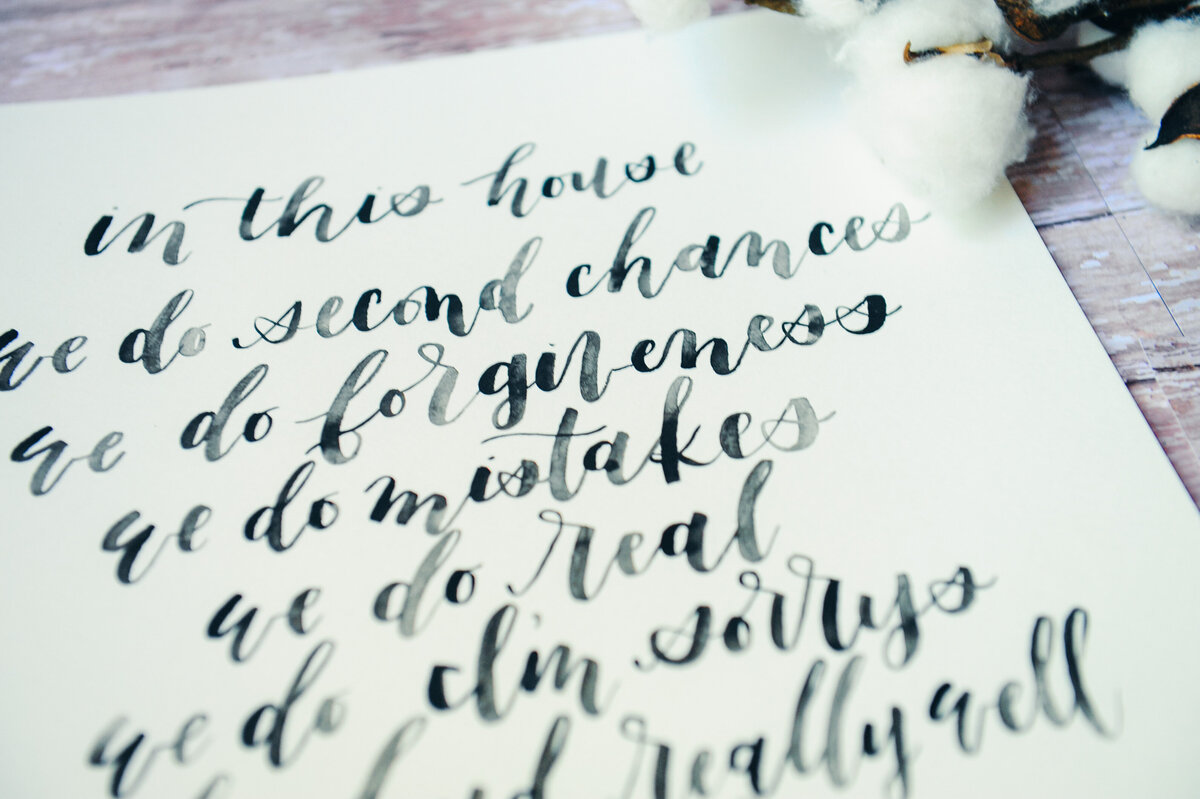 in this house
we do second chances
we do forgiveness
we do mistakes
we do real
we do I'm sorrys
really well